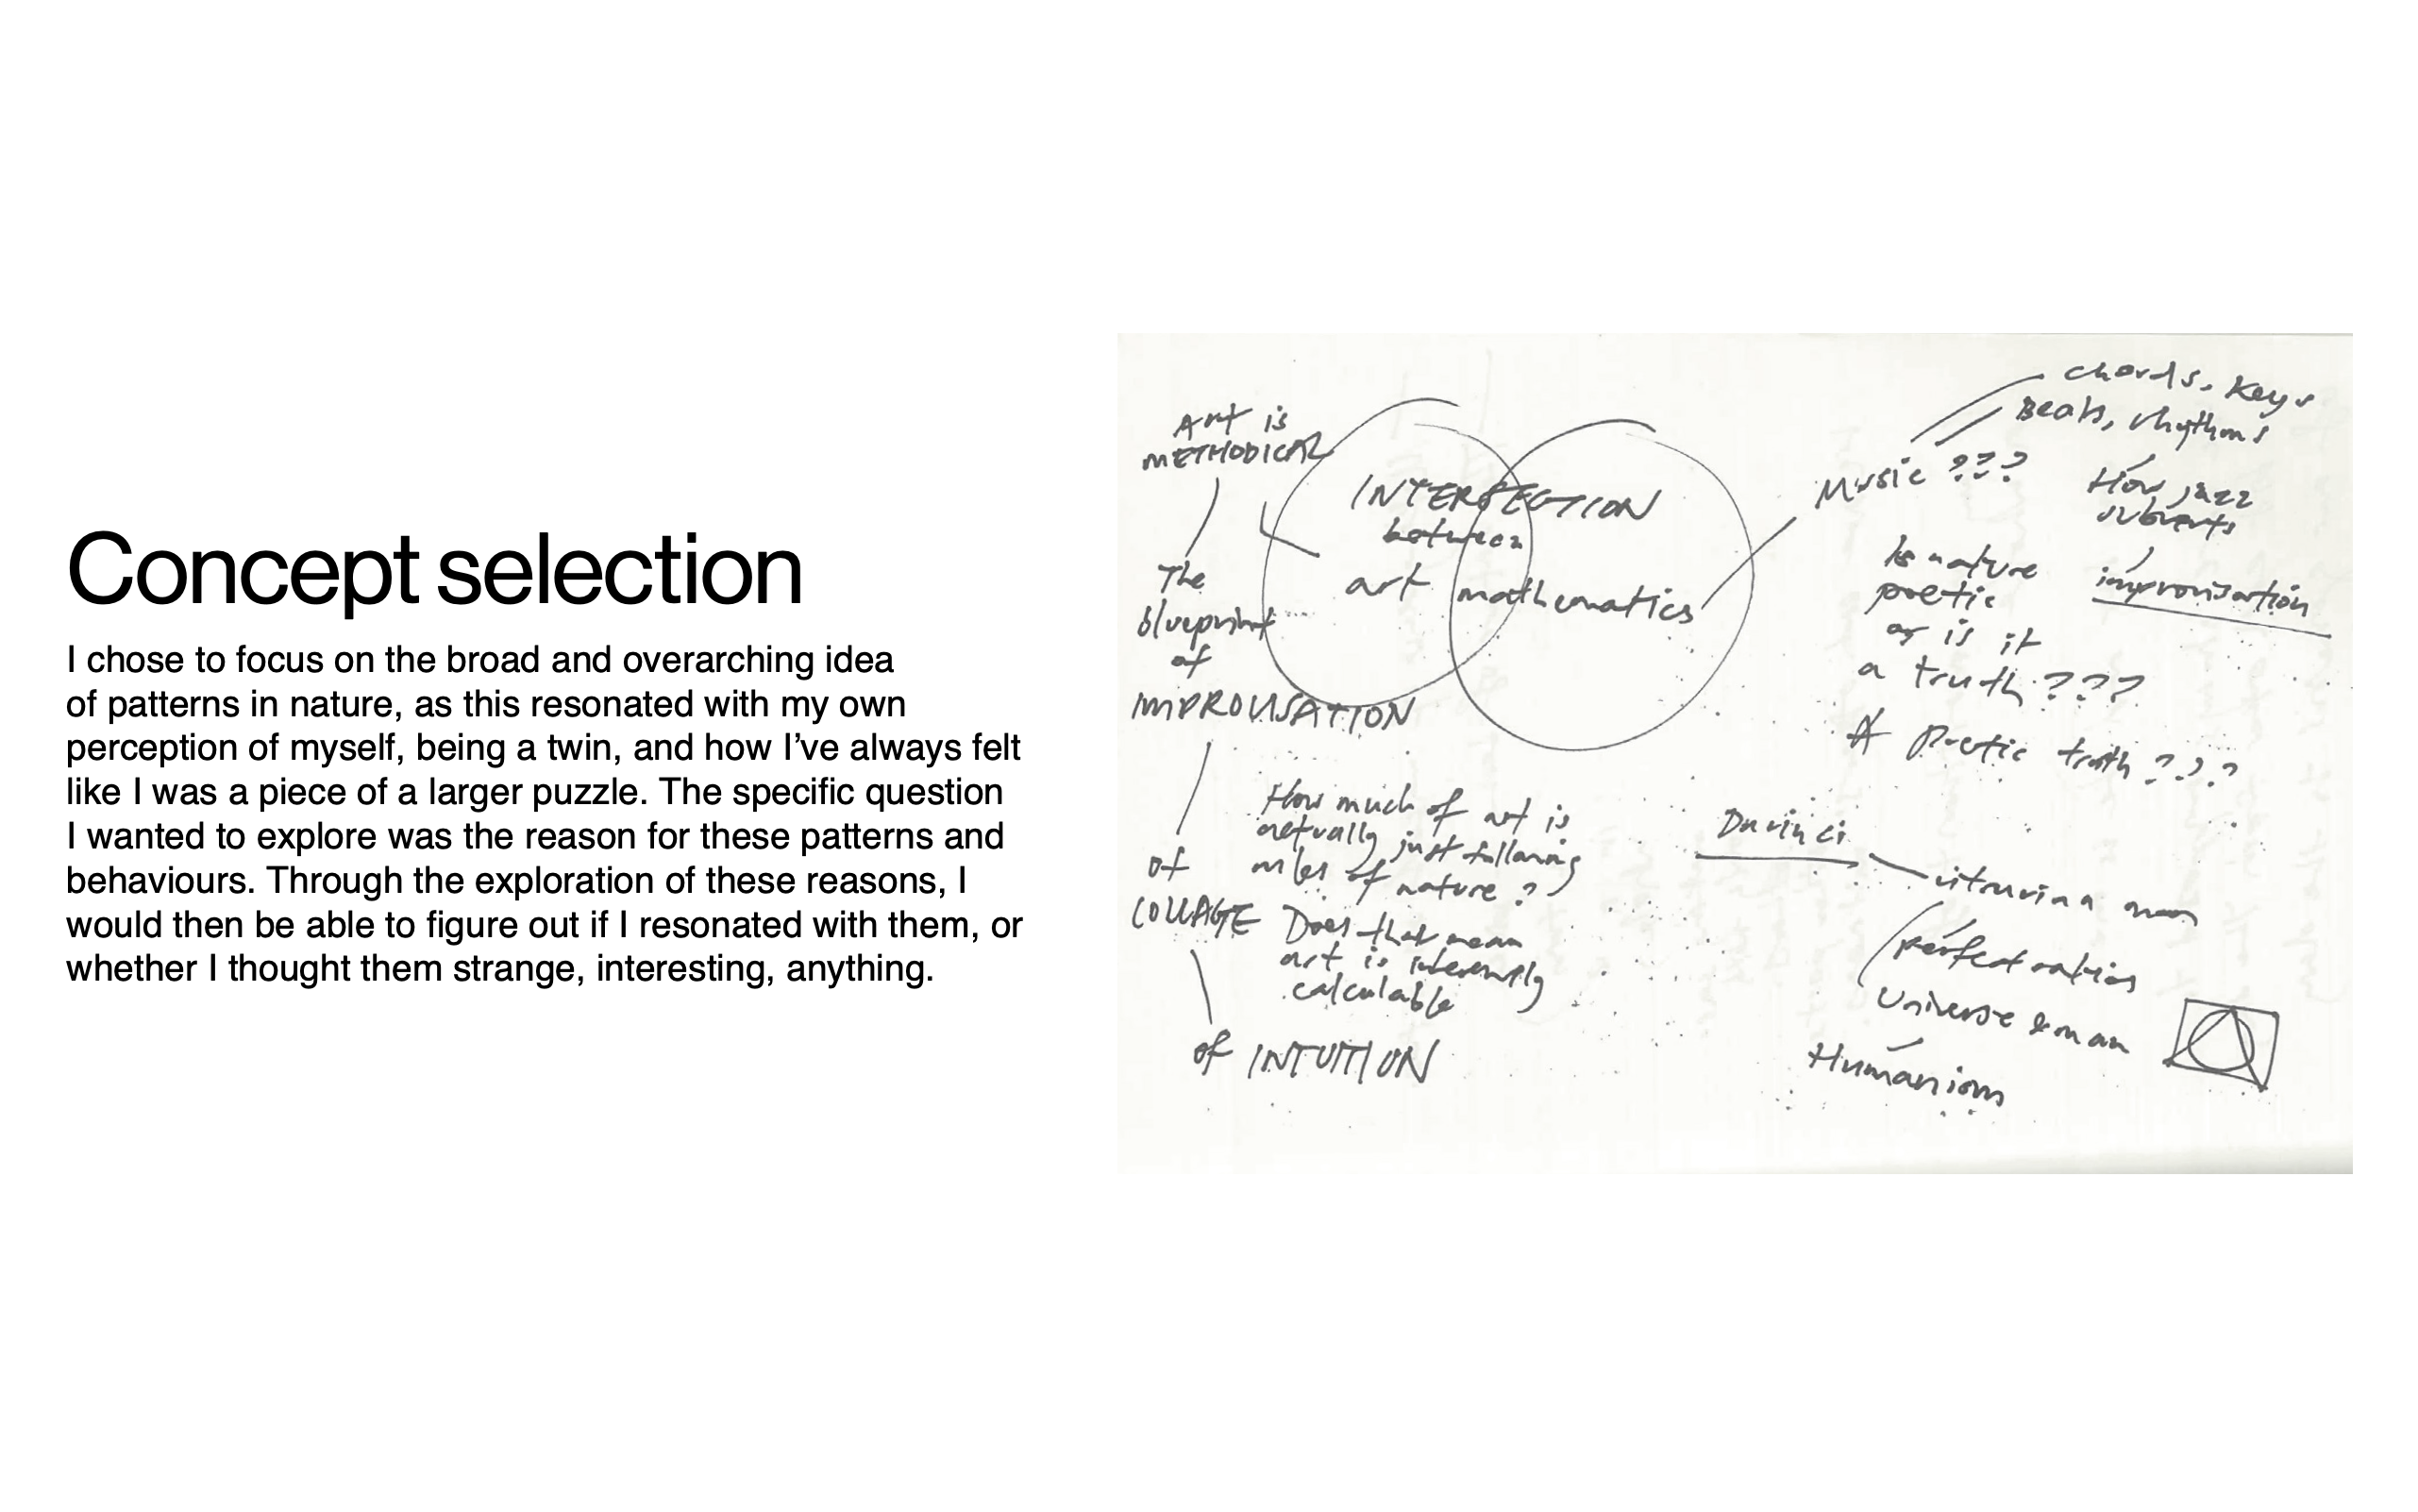 Concept selection
I chose to focus on the broad and overarching idea
of patterns in nature, as this resonated with my own
perception of myself, being a twin, and how I’ve always felt
like I was a piece of a larger puzzle. The specific question
I wanted to explore was the reason for these patterns and
behaviours. Through the exploration of these reasons, I
would then be able to figure out if I resonated with them, or
whether I thought them strange, interesting, anything.
Art is
METHODICAL
The
blueprint
of
IMPROVISATION
of
COLLAGE
of INTUITION
INTERSECTION
between
art mathematics
How much of art is
actually just following
rules of nature?
Does that mean
art is inherently
calculable
Music ???
chords, keys
Beats, rhythms
How jazz
subverts
improvisation
Is nature
poetic
or is it
a truth ???
A Poetic truth ???
Da vinci
vitruvian man
perfect ratios
Universe & man
Humanism